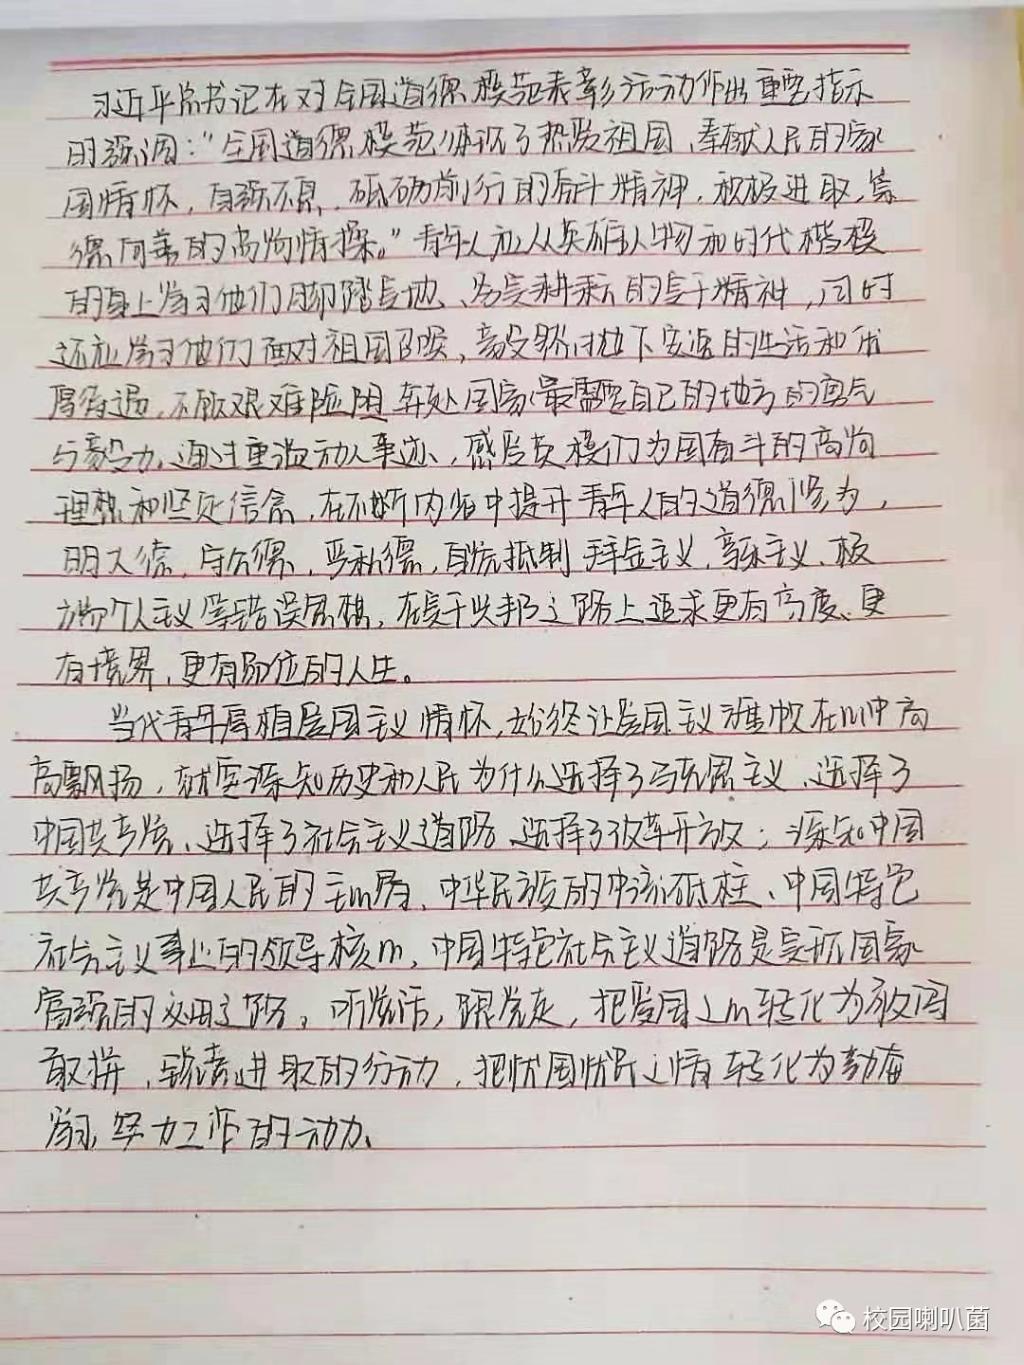 习近平总书记在对全国道德模范表彰活动作出重要指示
的强调："全国道德模范体现了热爱祖国、奉献人民的家
国情怀，自强不息、砥砺前行的奋斗精神，积极进取、崇
德向善的高尚情操。"青年人应从英雄人物和时代楷模
的身上学习他们脚踏实地、为实耕耘的实干精神，同时
还应学习他们面对祖国召唤，毅然抛下安逸的生活和优
厚待遇，不畏艰难险阻奔赴国家最需要自己的地方的勇气
与毅力。通过重温动人事迹、感受英模们为国奋斗的高尚
理想和坚定信念，在不断内省中提升青年人的道德修为，
明大德，守公德，严私德，自觉抵制拜金主义，享乐主义、极
端个人主义等错误思想，在实干兴邦之路上追求更有高度、更
有境界，更有品位的人生。
当代青年厚植爱国主义情怀，始终让爱国主义旗帜在心中高
高飘扬，就要深知历史和人民为什么选择了马克思主义、选择了
中国共产党、选择了社会主义道路、选择了改革开放；深知中国
共产党是中国人民的主心骨、中华民族的中流砥柱、中国特色
社会主义事业的领导核心，中国特色社会主义道路是实现国家
富强的必由之路。听党话，跟党走，把爱国之心转化为敢闯
敢拼，锐意进取的行动，把忧国忧民之情转化为勤奋
学习、努力工作的动力、
校园喇叭菌